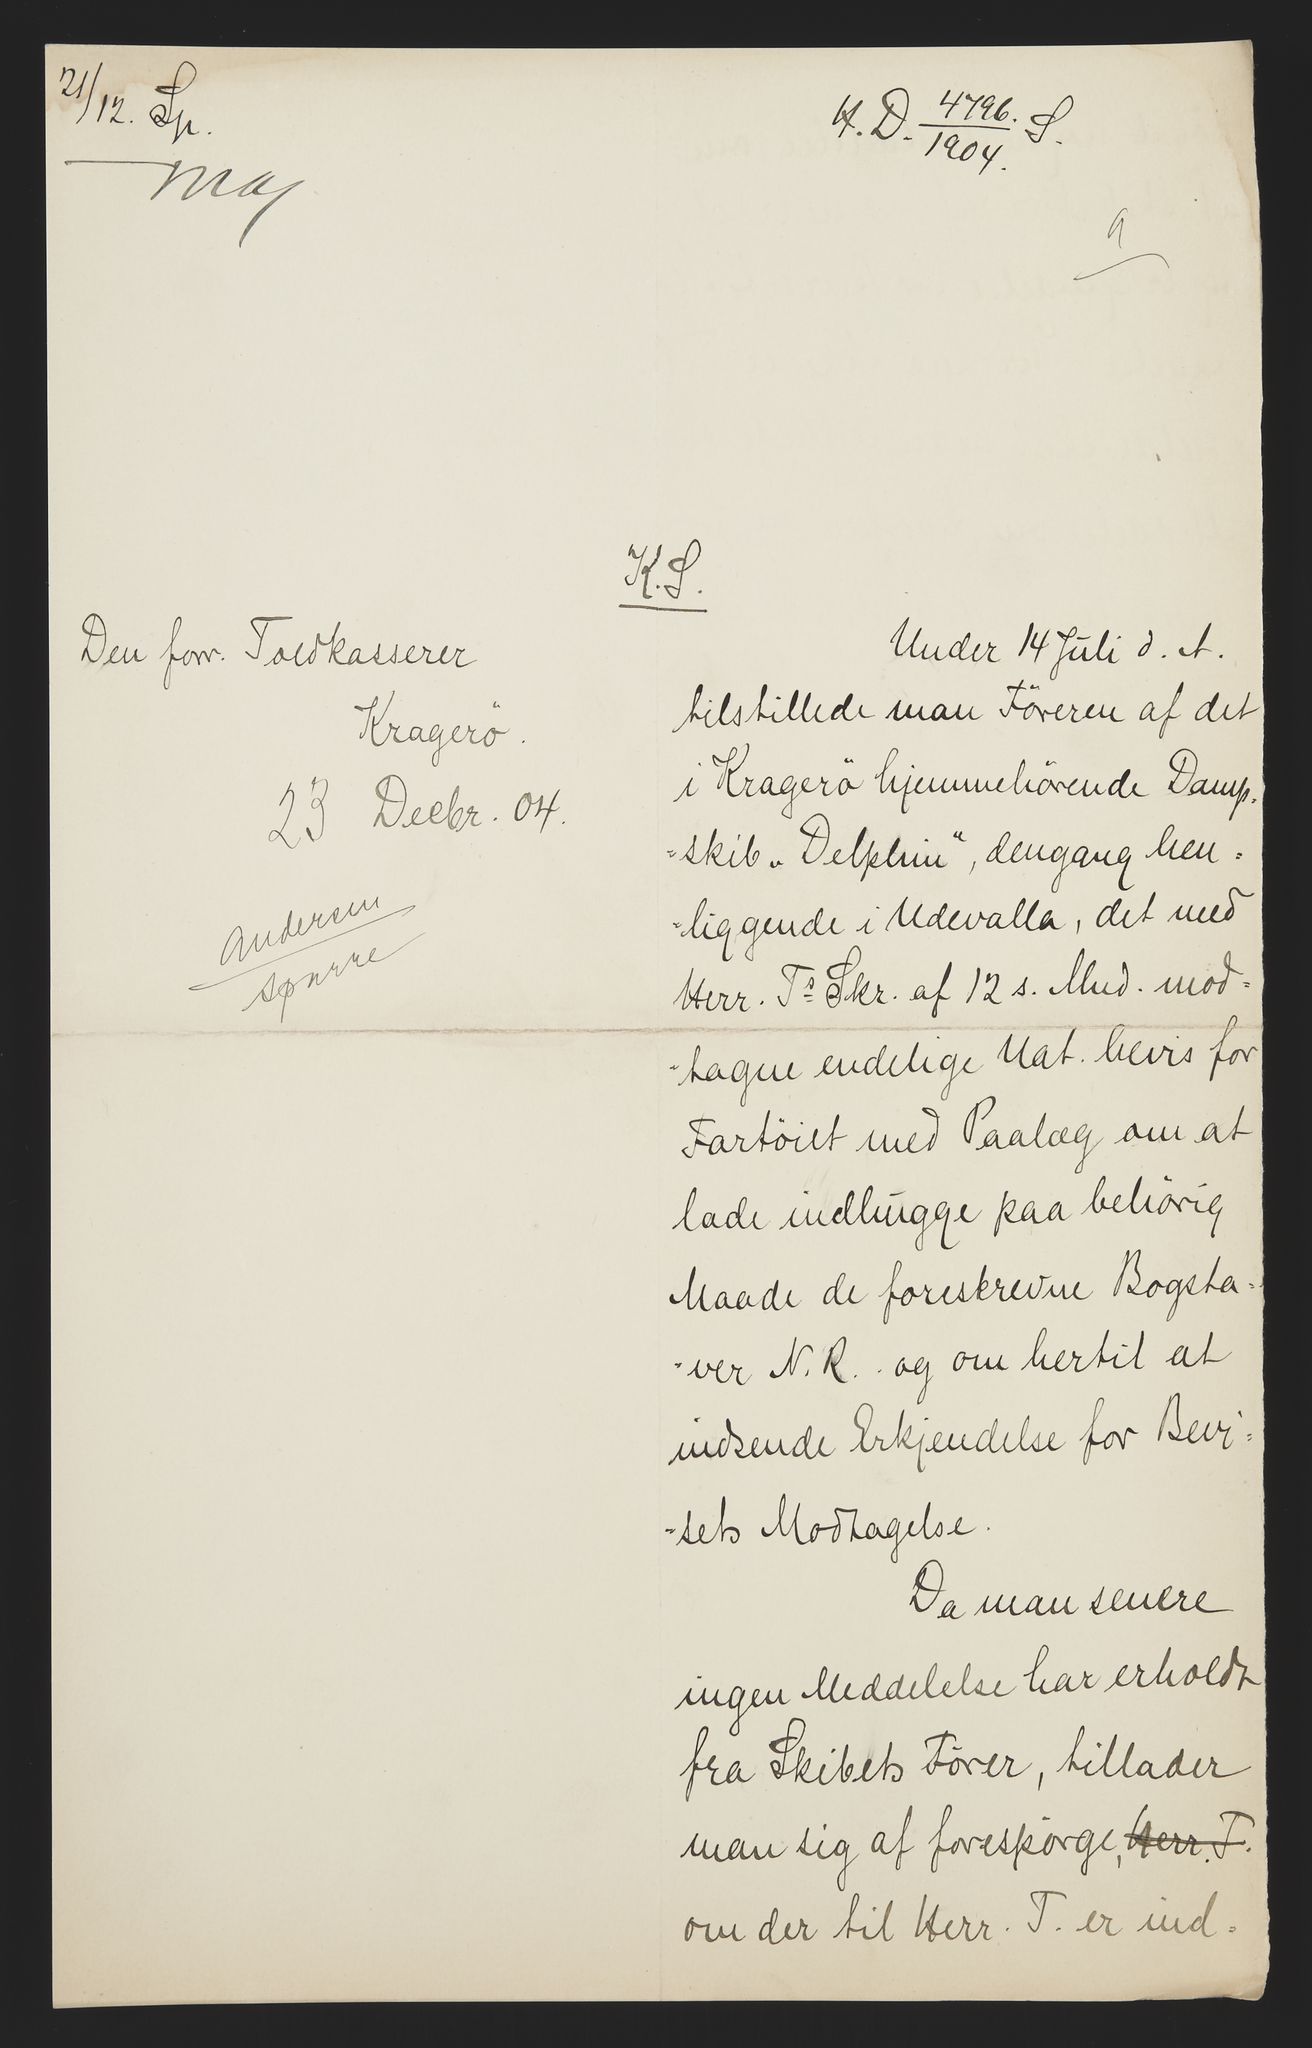 21/12. Sp.
H. D. 4796. S.
1904.
K. S.
Den forr. Toldkasserer
Kragerö.
23 Decbr. 04.
Andersen
Sparre
Under 14 Juli d. A.
tilstillede man Föreren af det
i Kragerö hjemmehörende Damp=
=skib „Delphin“, dengang hen=
=liggende i Udevalla, det med
Herr. Ts Skr. af 12 s. Mnd. mod=
=tagne endelige Nat. bevis for
Fartöiet med Paalæg om at
lade indhugge paa behörig
Maade de foreskrevne Bogsta=
=ver N. R. og om hertil at
indsende Erkjendelse for Bevi=
=sets Modtagelse.
Da man senere
ingen Meddelelse har erholdt
fra Skibets Förer, tillader
man sig at forespörge, Herr. T.
om der til Herr. T. er ind=